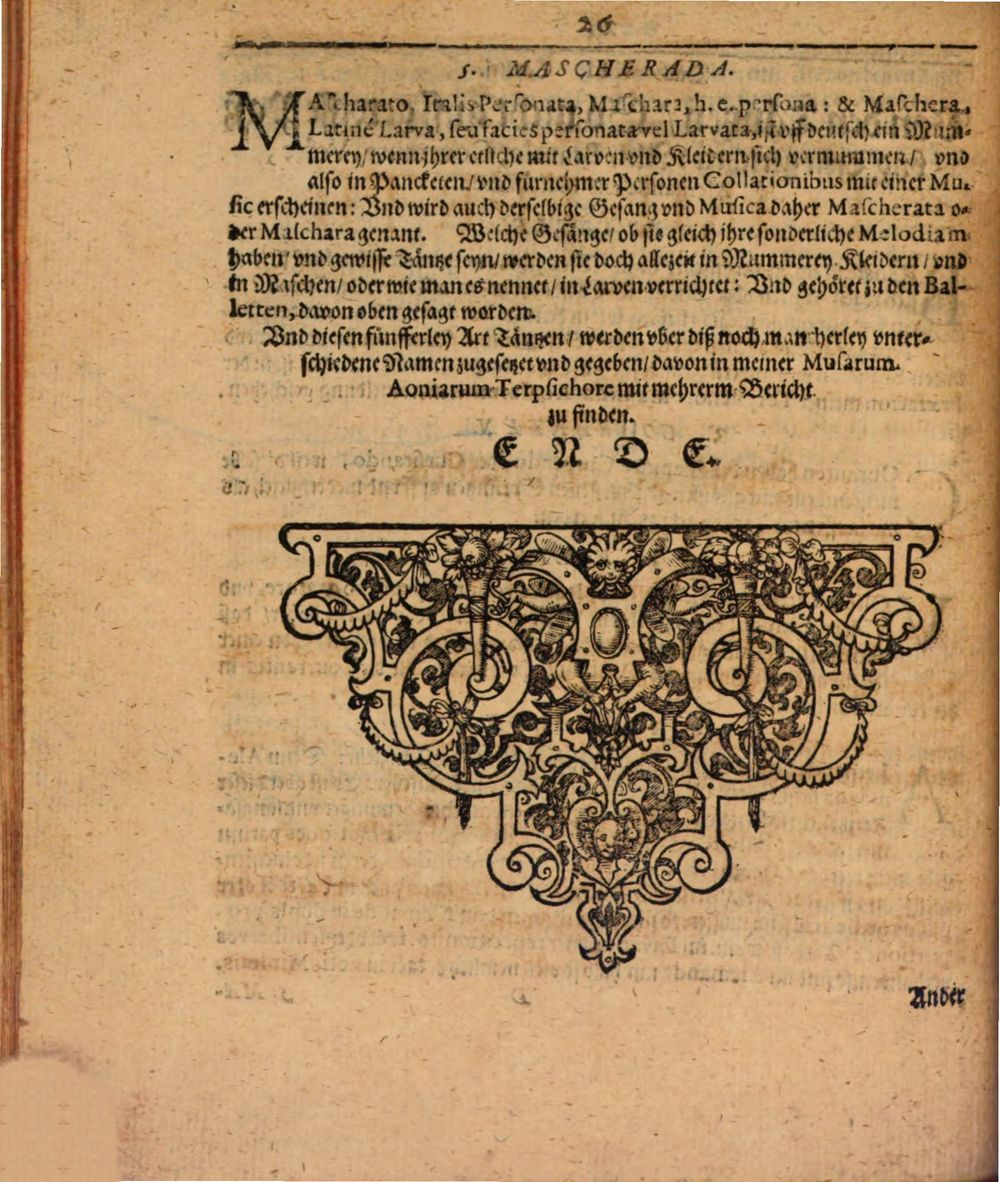 26
5. MASCHERADA.
MAscharato, Italis Personata, Maschara, h. e. persona: & Maschera,
Latinè Larva, seu facies personata vel Larvata, ist vff deutsch ein Mum-
merey/ wenn jhrer etliche mit Larven vnd Kleidern sich vermummen/ vnd
also in Pancketen/ vnd fürnehmer Personen Collationibus mit einer Mu-
sic erscheinen: Vnd wird auch derselbige Gesang vnd Musica daher Mascherata o-
der Maschara genant. Welche Gesänge/ ob sie gleich jhre sonderliche Melodiam
haben/ vnd gewisse Täntze seyn/ werden sie doch allezeit in Mummerey Kleidern/ vnd
in Maschen/ oder wie man es nennet/ in Larven verrichtet: Vnd gehöret zu den Bal-
letten, davon oben gesagt worden.
Vnd diesen fünfferley Art Täntzen/ werden vber diß noch mancherley vnter-
schiedene Namen zugesetzet vnd gegeben/ davon in meiner Musarum
Aoniarum Terpsichore mit mehrerm Bericht
zu finden.
E N D E.
Ander